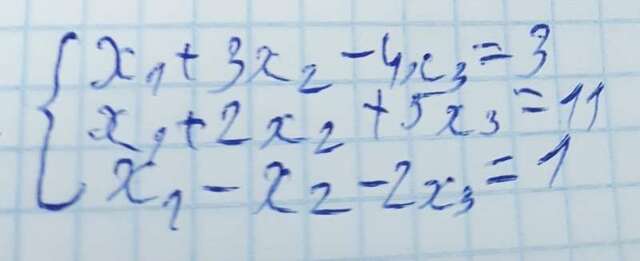 x₁ + 3x₂ - 4x₃ = 3
x₁ + 2x₂ + 5x₃ = 11
x₁ - x₂ - 2x₃ = 1